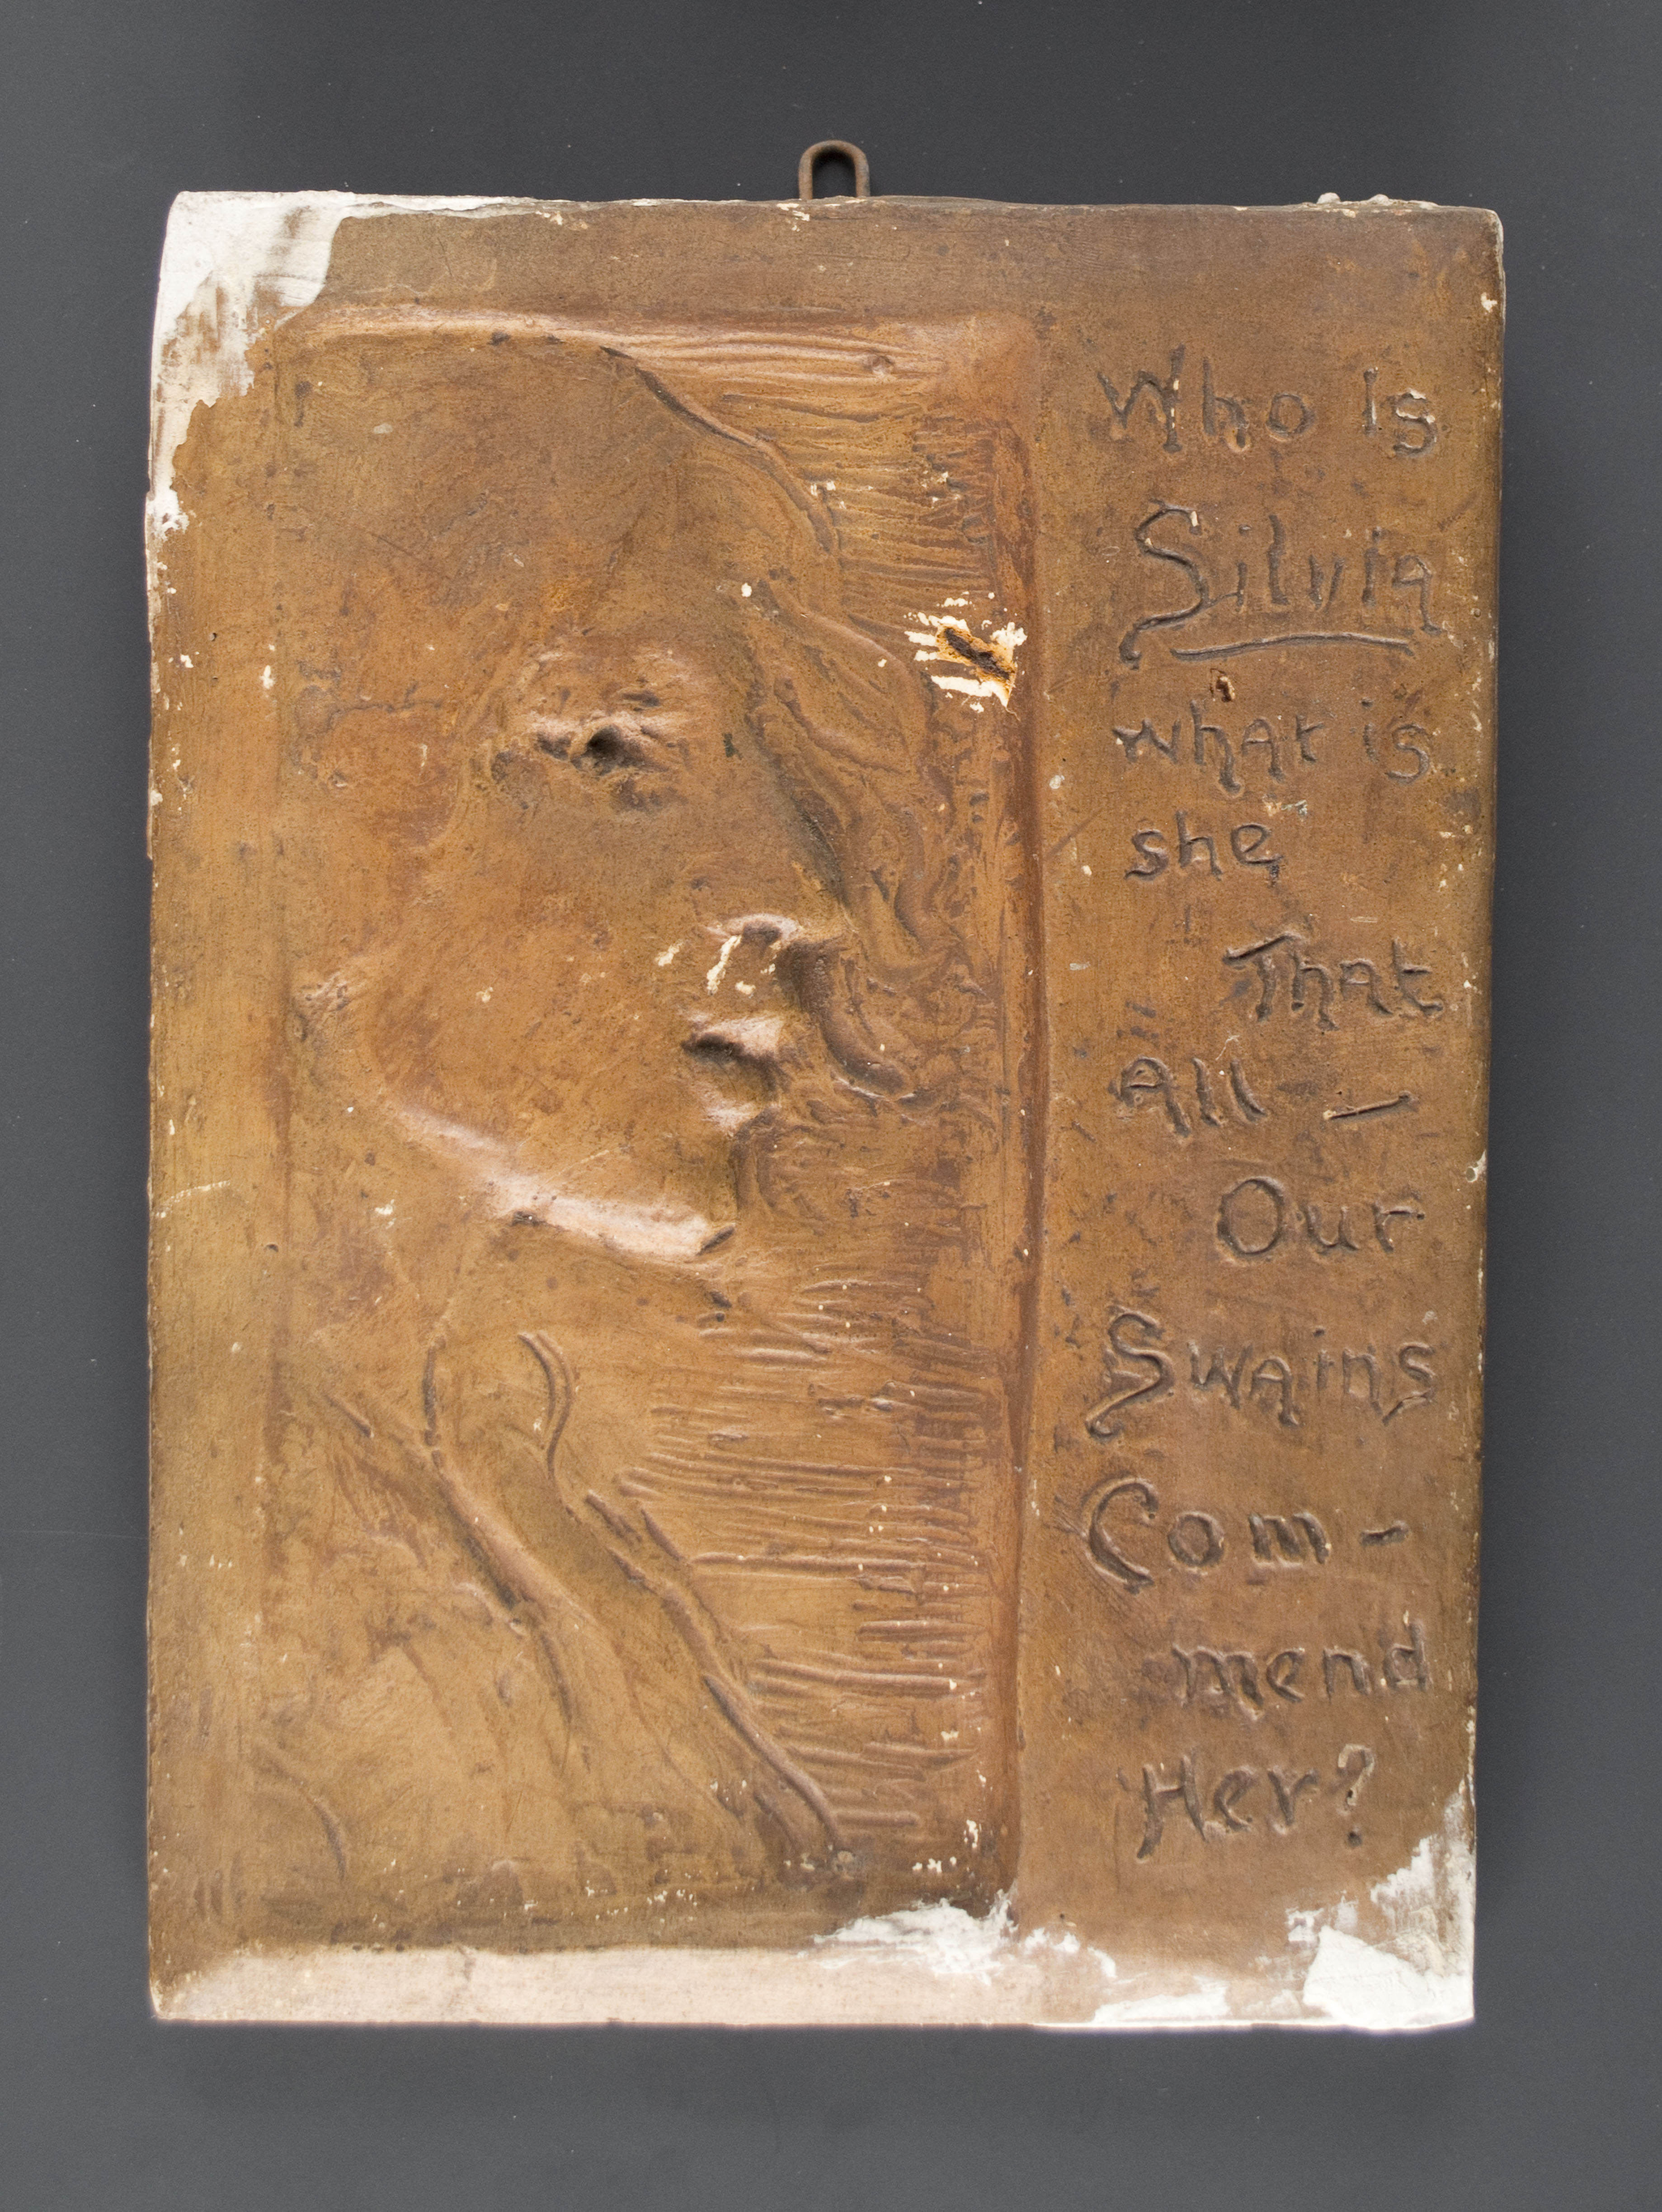 Who Is
Silvia
what is
she
That
All —
Our
Swains
Com-
mend
Her?